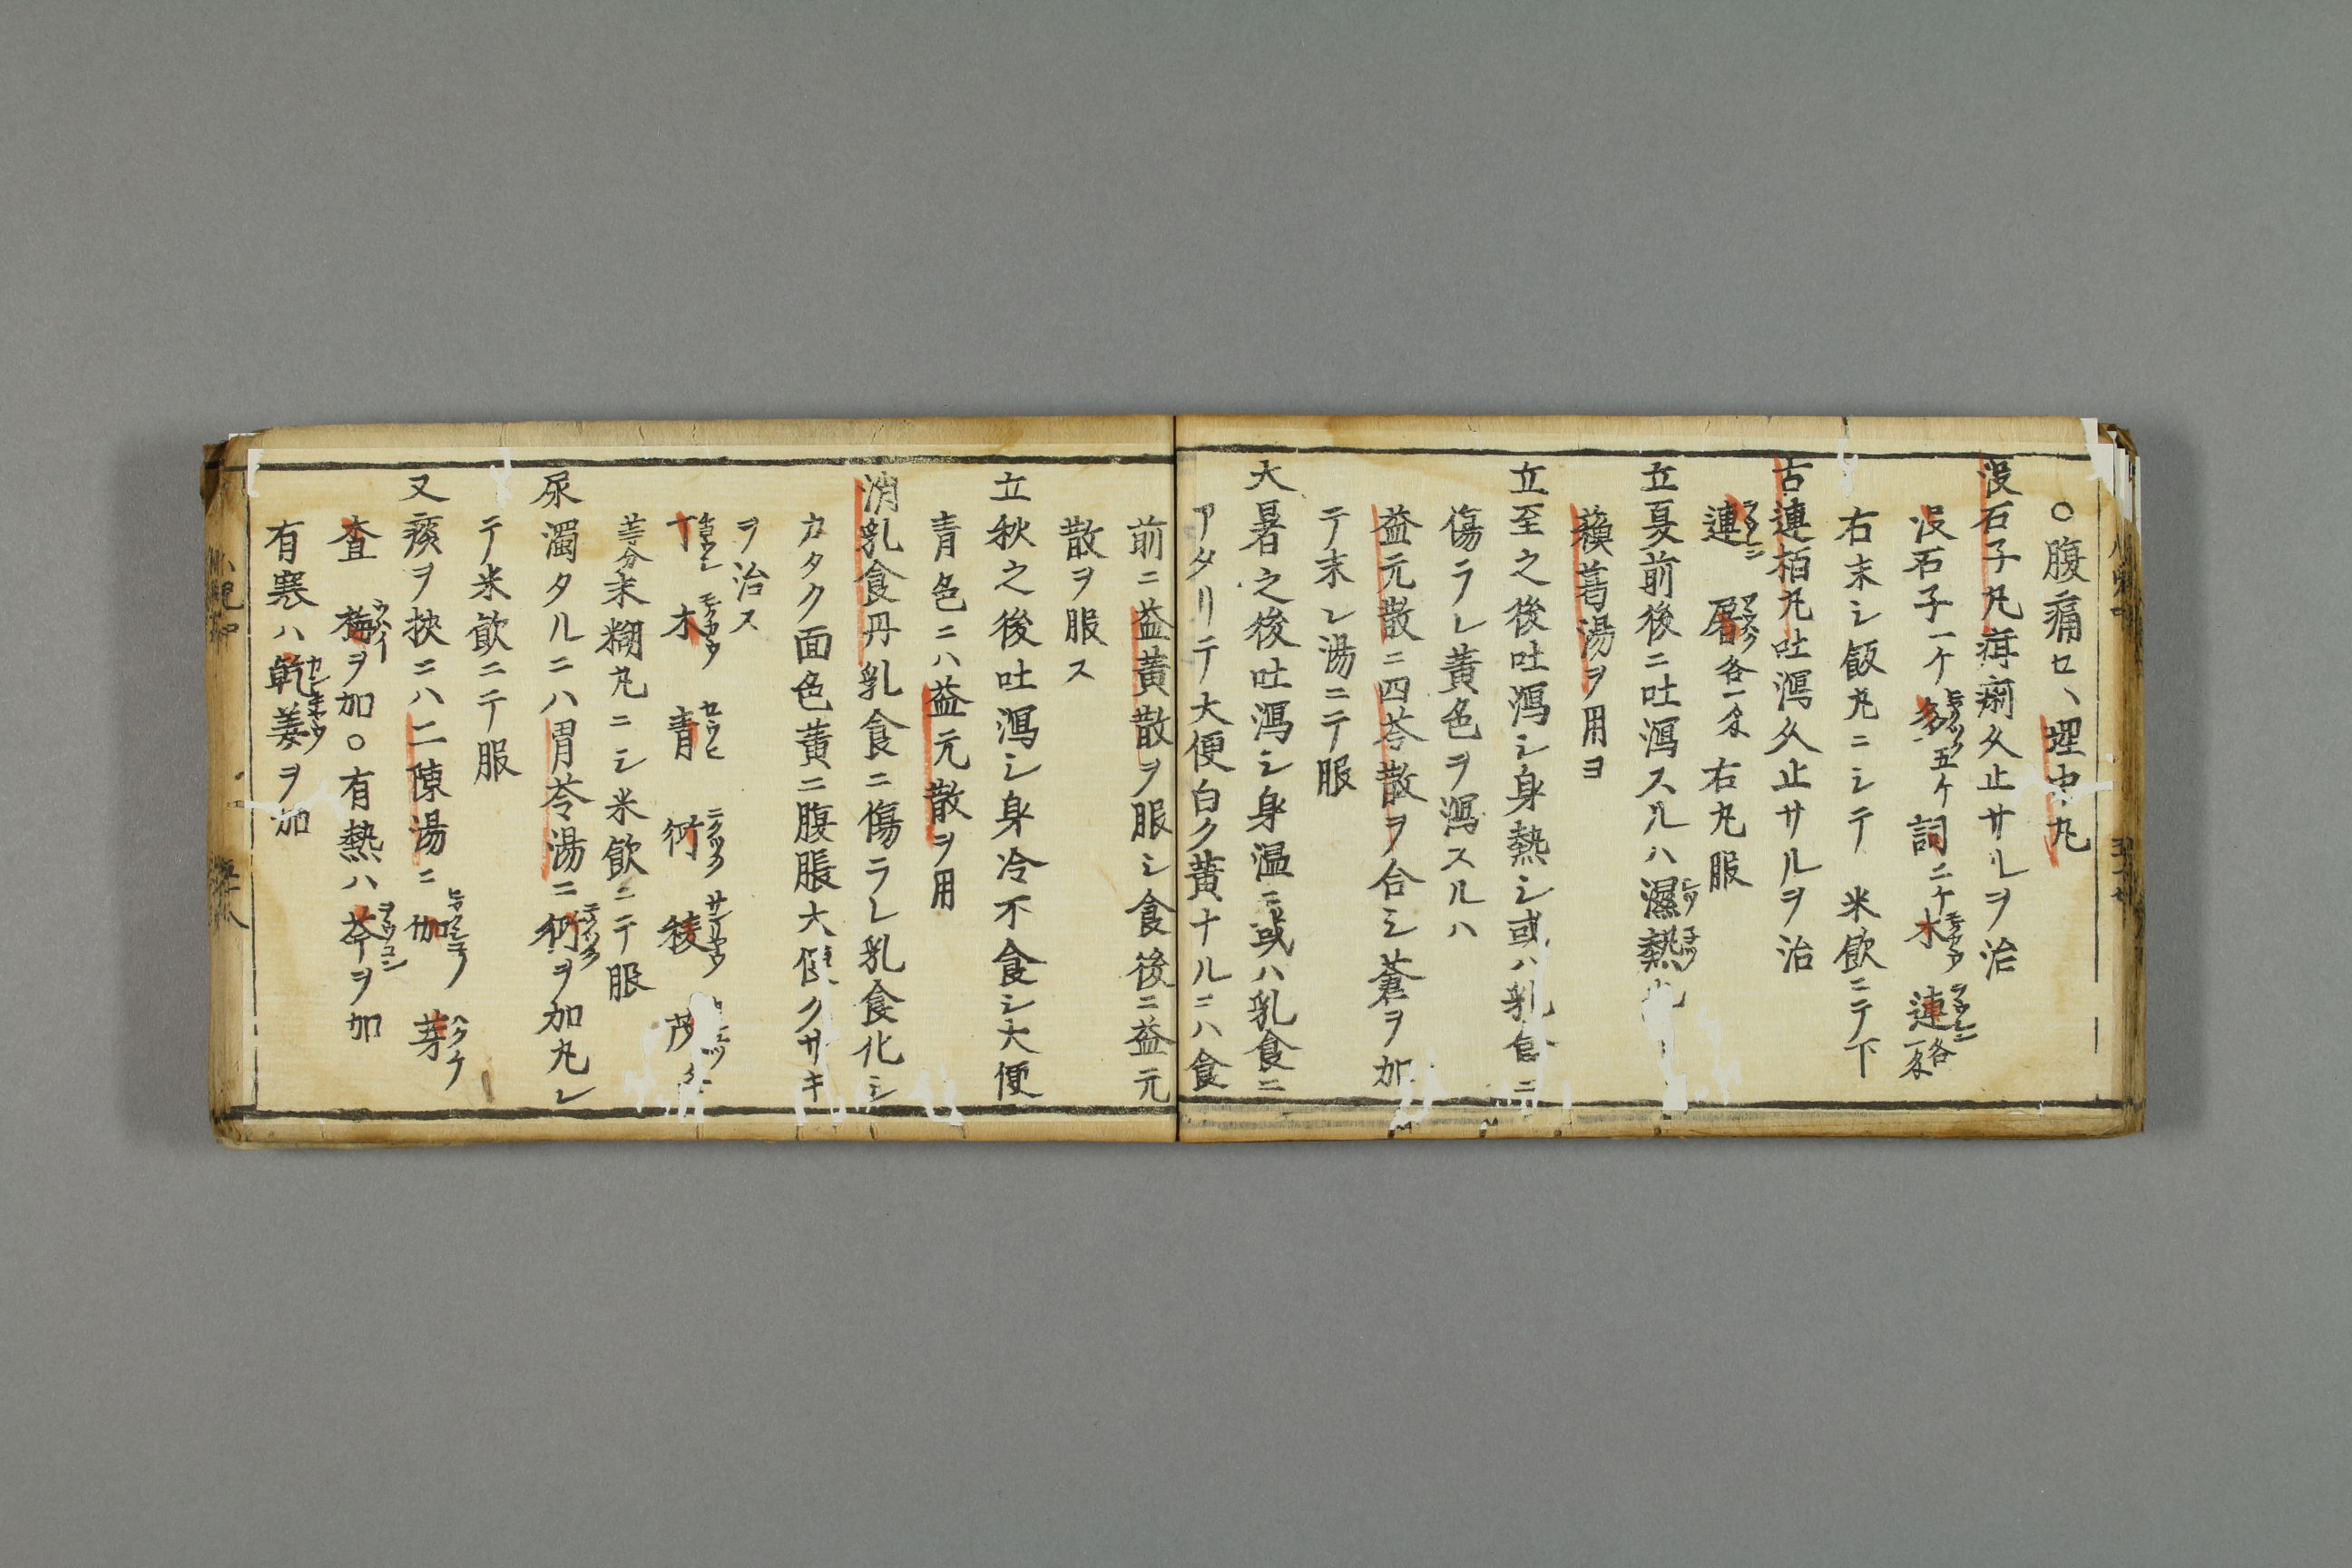 ○腹痛ロヽ理中丸
没石子丸疳痢久止サルヲ治
没石子一ケ 五ケ 訶ニケ 木モツカウ 連ワウレン各一匁
右末シ飯丸ニシテ 米飲ニテ下
古連栢丸吐瀉久止サルヲ治
連ワウレン 各一匁右丸服
立夏前後ニ吐瀉スルハ濕熱
葛湯ヲ用ヨ
立至之後吐瀉シ身熱シ或ハ乳食ニ
傷ラレ黄色ヲ瀉スルハ
益元散ニ四苓散ヲ合シ蒼ヲ加
テ末シ湯ニテ服
大暑之後吐瀉シ身温ニ或ハ乳食ニ
アタリテ大便白ク黄ナルニハ食
前ニ益黄散ヲ服シ食後ニ益元
散ヲ服ス
立秋之後吐瀉シ身冷不食シ大便
青色ニハ益元散ヲ用
消乳食丹乳食ニ傷ラレ乳食化シ
カタク面色黄ニ腹脹大便クサキ
ヲ治ス
丁 木モツカウ 青セウヒ 蔲ニクツク 稜サンリヤウ 茂
等分末糊丸ニシ米飲ニテ服
尿濁タルニハ胃苓湯ニ蔲ニクツクヲ加丸シ
テ米飲ニテ服
又痰ヲ挾ニハ二陳湯ニ 芽ハクケ
査 梅ウハイヲ加○有熱ハ芩ワウコンヲ加
有寒ハ乾姜カンキヤウヲ加